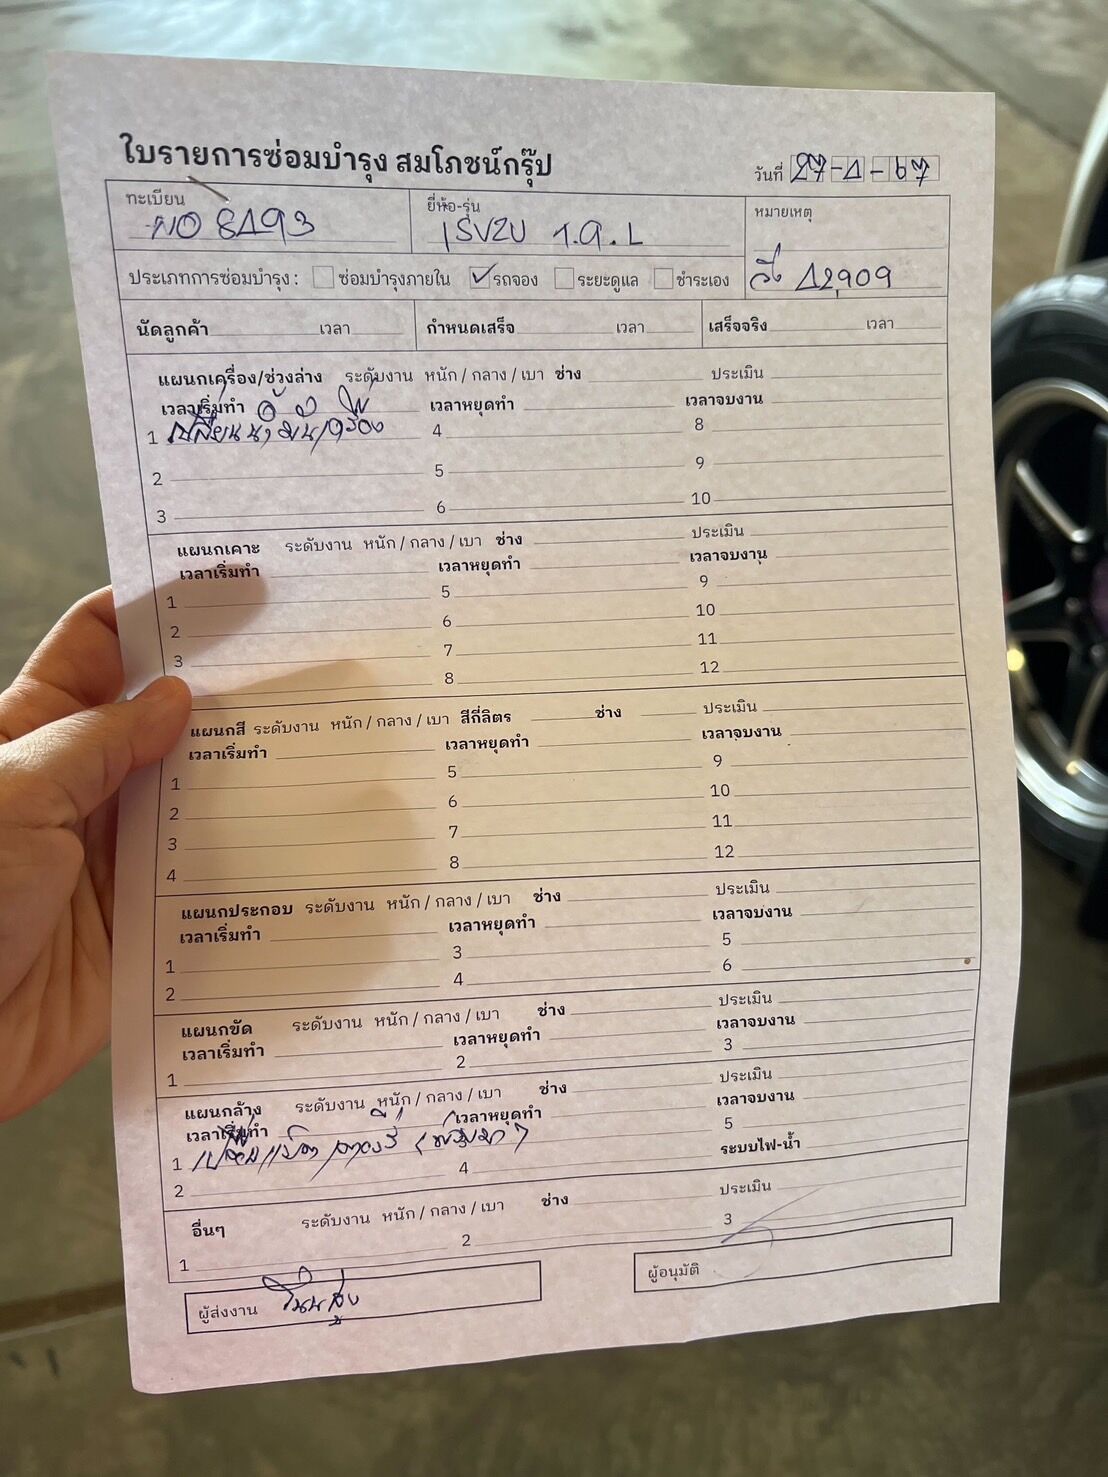 ใบรายการซ่อมบำรุง สมโภชน์กรุ๊ป
วันที่ 27-4-67
ทะเบียน ผอ 8493
ยี่ห้อ-รุ่น ISUZU 1.9.L
หมายเหตุ
วิ่ง 42,909
ประเภทการซ่อมบำรุง : ซ่อมบำรุงภายใน ✓ รถจอง ระยะดูแล ชำระเอง
นัดลูกค้า เวลา กำหนดเสร็จ เวลา เสร็จจริง เวลา
แผนกเครื่อง/ช่วงล่าง ระดับงาน หนัก / กลาง / เบา ช่าง ประเมิน
เวลาเริ่มทำ เวลาหยุดทำ เวลาจบงาน
1 เปลี่ยนน้ำมันเครื่อง 4 8
2 5 9
3 6 10
แผนกเคาะ ระดับงาน หนัก / กลาง / เบา ช่าง ประเมิน
เวลาเริ่มทำ เวลาหยุดทำ เวลาจบงาน
1 5 9
2 6 10
3 7 11
8 12
แผนกสี ระดับงาน หนัก / กลาง / เบา สีกี่ลิตร ช่าง ประเมิน
เวลาเริ่มทำ เวลาหยุดทำ เวลาจบงาน
1 5 9
2 6 10
3 7 11
4 8 12
แผนกประกอบ ระดับงาน หนัก / กลาง / เบา ช่าง ประเมิน
เวลาเริ่มทำ เวลาหยุดทำ เวลาจบงาน
1 3 5
2 4 6
แผนกขัด ระดับงาน หนัก / กลาง / เบา ช่าง ประเมิน
เวลาเริ่มทำ เวลาหยุดทำ เวลาจบงาน
1 2 3
แผนกล้าง ระดับงาน หนัก / กลาง / เบา ช่าง ประเมิน
เวลาเริ่มทำ เวลาหยุดทำ เวลาจบงาน
1 เปลี่ยนแบตเตอรี่ 5
2 4 ระบบไฟ-น้ำ
อื่นๆ ระดับงาน หนัก / กลาง / เบา ช่าง ประเมิน
1 2 3
ผู้ส่งงาน
ผู้อนุมัติ